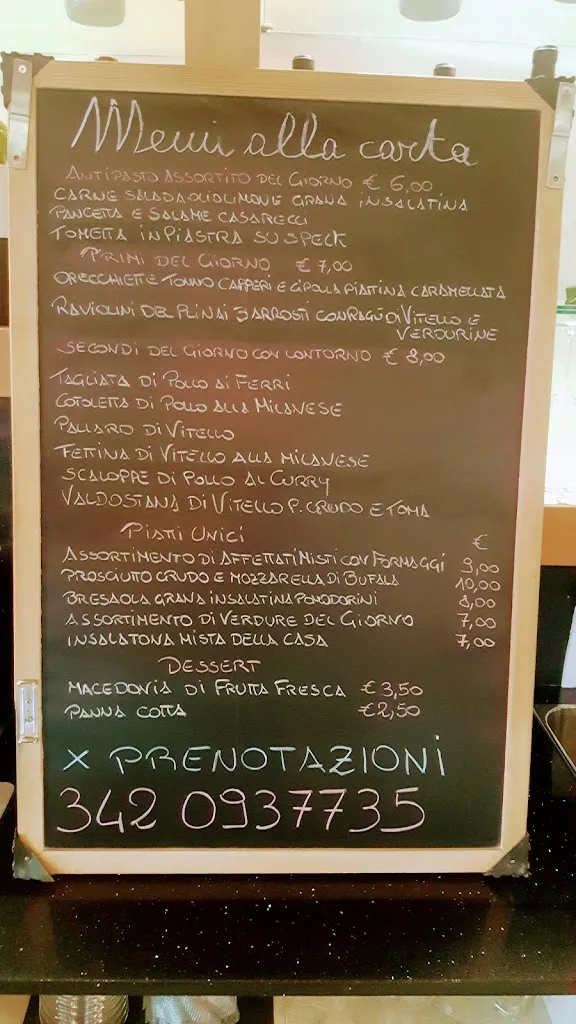 Menu alla carta
ANTIPASTO ASSORTITO DEL GIORNO € 6,00
CARNE SALADA OLIO LIMONE GRANA INSALATINA
PANCETTA E SALAME CASARECCI
TOMETTA IN PIASTRA SU SPECK
PRIMI DEL GIORNO € 7,00
ORECCHIETTE TONNO CAPPERI E CIPOLLA PIATTINA CARAMELLATA
RAVIOLINI DEL PLIN AI 3 ARROSTI CON RAGÙ DI VITELLO E
VERDURINE
SECONDI DEL GIORNO CON CONTORNO € 8,00
TAGLIATA DI POLLO AI FERRI
COTOLETTA DI POLLO ALLA MILANESE
PAILLARD DI VITELLO
FETTINA DI VITELLO ALLA MILANESE
SCALOPPE DI POLLO AL CURRY
VALDOSTANA DI VITELLO P. CRUDO E TOMA
PIATTI UNICI €
ASSORTIMENTO DI AFFETTATI MISTI CON FORMAGGI 9,00
PROSCIUTTO CRUDO E MOZZARELLA DI BUFALA 10,00
BRESAOLA GRANA INSALATINA POMODORINI 8,00
ASSORTIMENTO DI VERDURE DEL GIORNO 7,00
INSALATONA MISTA DELLA CASA 7,00
DESSERT
MACEDONIA DI FRUTTA FRESCA € 3,50
PANNA COTTA € 2,50
X PRENOTAZIONI
342 0937735